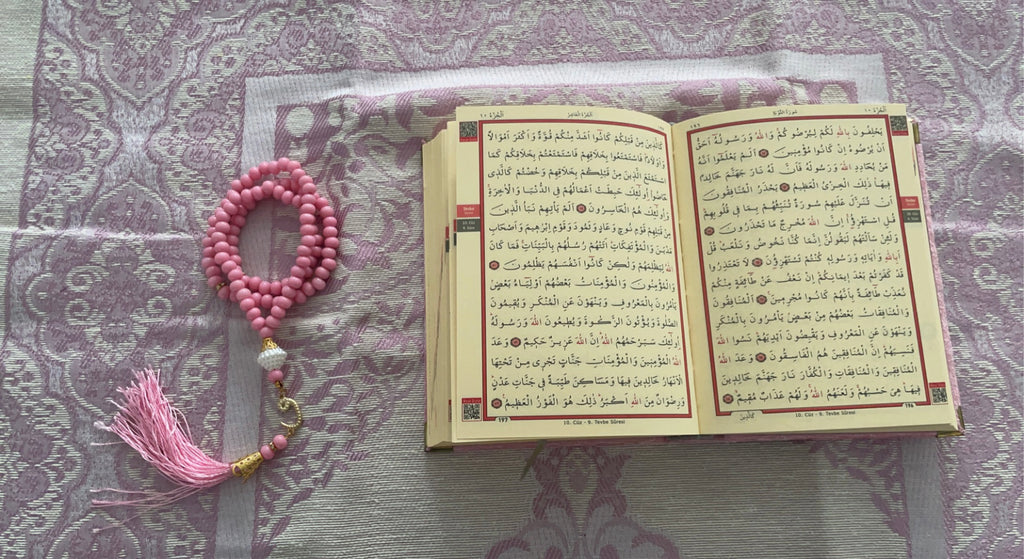 الجزء ١٠
سورة التوبة
يَحْلِفُونَ بِاللّٰهِ لَكُمْ لِيُرْضُوكُمْ وَاللّٰهُ وَرَسُولُهُٓ اَحَقُّ
اَنْ يُرْضُوهُ اِنْ كَانُوا مُؤْمِنِينَ اَلَمْ يَعْلَمُٓوا اَنَّهُ
مَنْ يُحَادِدِ اللّٰهَ وَرَسُولَهُ فَاَنَّ لَهُ نَارَ جَهَنَّمَ خَالِداً
فِيهَا ذٰلِكَ الْخِزْيُ الْعَظِيمُ يَحْذَرُ الْمُنَافِقُونَ
اَنْ تُنَزَّلَ عَلَيْهِمْ سُورَةٌ تُنَبِّئُهُمْ بِمَا فِي قُلُوبِهِمْ
قُلِ اسْتَهْزِؤُا اِنَّ اللّٰهَ مُخْرِجٌ مَا تَحْذَرُونَ
وَلَئِنْ سَاَلْتَهُمْ لَيَقُولُنَّ اِنَّمَا كُنَّا نَخُوضُ وَنَلْعَبُ قُلْ
اَبِاللّٰهِ وَاٰيَاتِهِ وَرَسُولِهِ كُنْتُمْ تَسْتَهْزِؤُنَ لَا تَعْتَذِرُوا
قَدْ كَفَرْتُمْ بَعْدَ اِيمَانِكُمْ اِنْ نَعْفُ عَنْ طَٓائِفَةٍ مِنْكُمْ
نُعَذِّبْ طَٓائِفَةً بِاَنَّهُمْ كَانُوا مُجْرِمِينَ اَلْمُنَافِقُونَ
وَالْمُنَافِقَاتُ بَعْضُهُمْ مِنْ بَعْضٍ يَأْمُرُونَ بِالْمُنْكَرِ
وَيَنْهَوْنَ عَنِ الْمَعْرُوفِ وَيَقْبِضُونَ اَيْدِيَهُمْ نَسُوا اللّٰهَ
فَنَسِيَهُمْ اِنَّ الْمُنَافِقِينَ هُمُ الْفَاسِقُونَ وَعَدَ اللّٰهُ
الْمُنَافِقِينَ وَالْمُنَافِقَاتِ وَالْكُفَّارَ نَارَ جَهَنَّمَ خَالِدِينَ
فِيهَا هِيَ حَسْبُهُمْ وَلَعَنَهُمُ اللّٰهُ وَلَهُمْ عَذَابٌ مُقِيمٌ
كَالَّذِينَ
10. Cüz - 9. Tevbe Sûresi
196
الجزء العاشر
الجزء ١٠
كَالَّذِينَ مِنْ قَبْلِكُمْ كَانُٓوا اَشَدَّ مِنْكُمْ قُوَّةً وَاَكْثَرَ اَمْوَالاً
وَاَوْلَاداً فَاسْتَمْتَعُوا بِخَلَاقِهِمْ فَاسْتَمْتَعْتُمْ بِخَلَاقِكُمْ كَمَا
اسْتَمْتَعَ الَّذِينَ مِنْ قَبْلِكُمْ بِخَلَاقِهِمْ وَخُضْتُمْ كَالَّذِي
خَاضُوا اُولٰٓئِكَ حَبِطَتْ اَعْمَالُهُمْ فِي الدُّنْيَا وَالْاٰخِرَةِ
وَاُولٰٓئِكَ هُمُ الْخَاسِرُونَ اَلَمْ يَأْتِهِمْ نَبَاُ الَّذِينَ
مِنْ قَبْلِهِمْ قَوْمِ نُوحٍ وَعَادٍ وَثَمُودَ وَقَوْمِ اِبْرٰهِيمَ وَاَصْحَابِ
مَدْيَنَ وَالْمُؤْتَفِكَاتِ اَتَتْهُمْ رُسُلُهُمْ بِالْبَيِّنَاتِ فَمَا كَانَ
اللّٰهُ لِيَظْلِمَهُمْ وَلٰكِنْ كَانُٓوا اَنْفُسَهُمْ يَظْلِمُونَ
وَالْمُؤْمِنُونَ وَالْمُؤْمِنَاتُ بَعْضُهُمْ اَوْلِيَٓاءُ بَعْضٍ
يَأْمُرُونَ بِالْمَعْرُوفِ وَيَنْهَوْنَ عَنِ الْمُنْكَرِ وَيُقِيمُونَ
الصَّلٰوةَ وَيُؤْتُونَ الزَّكٰوةَ وَيُطِيعُونَ اللّٰهَ وَرَسُولَهُ
اُولٰٓئِكَ سَيَرْحَمُهُمُ اللّٰهُ اِنَّ اللّٰهَ عَزِيزٌ حَكِيمٌ وَعَدَ
اللّٰهُ الْمُؤْمِنِينَ وَالْمُؤْمِنَاتِ جَنَّاتٍ تَجْرِي مِنْ تَحْتِهَا
الْاَنْهَارُ خَالِدِينَ فِيهَا وَمَسَاكِنَ طَيِّبَةً فِي جَنَّاتِ عَدْنٍ
وَرِضْوَانٌ مِنَ اللّٰهِ اَكْبَرُ ذٰلِكَ هُوَ الْفَوْزُ الْعَظِيمُ
197
10. Cüz - 9. Tevbe Sûresi